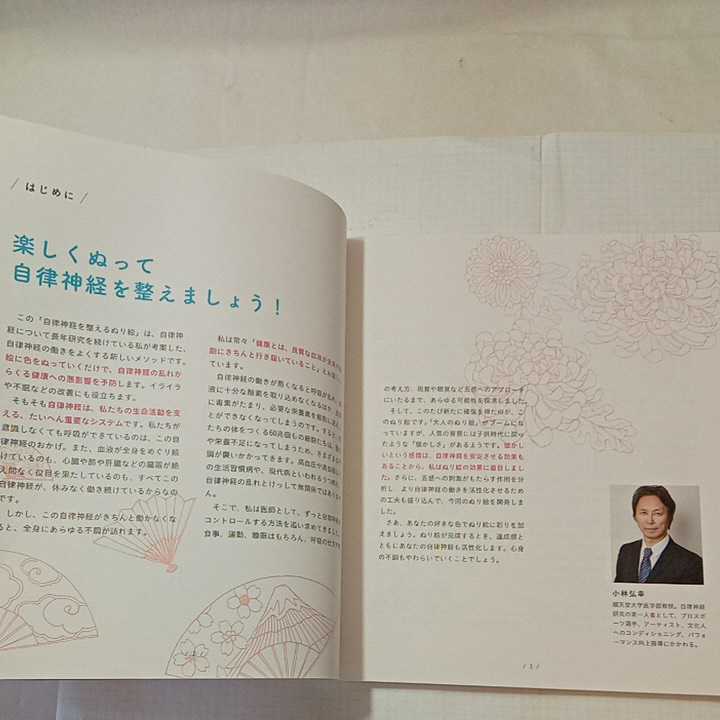 / はじめに /
楽しくぬって
自律神経を整えましょう！
この「自律神経を整えるぬり絵」は、自律神
経について長年研究を続けている私が考案した、
自律神経の働きをよくする新しいメソッドです。
絵に色をぬっていくだけで、自律神経の乱れか
らくる健康への悪影響を予防します。イライラ
や不眠などの改善にも役立ちます。
そもそも自律神経は、私たちの生命活動を支
える、たいへん重要なシステムです。私たちが
意識しなくても呼吸ができているのは、この自
律神経のおかげ。また、血液が全身をめぐり続
けているのも、心臓や肺や肝臓などの臓器が絶
え間なく役目を果たしているのも、すべてこの
自律神経が、休みなく働き続けているからなの
です。
しかし、この自律神経がきちんと働かなくな
ると、全身にあらゆる不調が訪れます。
私は常々「健康とは、良質な血液が
胞にきちんと行き届いていること」と
ています。
自律神経の働きが悪くなると呼吸が
液に十分な酸素を取り込めなくなる
に毒素がたまり、必要な栄養素を
とができなくなってしまうのです。すると、
たちの体をつくる60兆個もの細胞
や栄養不足になってしまうため、さまざまな
調が襲いかかってきます。高血圧や
の生活習慣病や、現代病といわれるうつ
自律神経の乱れとけっして無関係では
ん。
そこで、私は医師として、ずっと自律神経を
コントロールする方法を追い求めてきました。
食事、運動、睡眠はもちろん、呼吸の仕方や
の考え方、視覚や聴覚など五感へのアプローチ
にいたるまで、あらゆる可能性を探求しました。
そして、このたび新たに確信を得たのが、こ
のぬり絵です。「大人のぬり絵」がブームにな
っていますが、人気の背景には子供時代に戻っ
たような「懐かしさ」があるようです。懐かし
いという感情は、自律神経を安定させる効果も
あることから、私はぬり絵の効果に着目しまし
た。さらに、五感への刺激がもたらす作用を分
析し、より自律神経の働きを活性化させるため
の工夫も盛り込んで、今回のぬり絵を開発しま
した。
さあ、あなたの好きな色でぬり絵に彩りを加
えましょう。ぬり絵が完成するとき、達成感と
ともにあなたの自律神経も活性化します。心身
の不調もやわらいでいくことでしょう。
小林弘幸
順天堂大学医学部教授。自律神経
研究の第一人者として、プロスポ
ーツ選手、アーティスト、文化人
へのコンディショニング、パフォ
ーマンス向上指導にかかわる。
/ 3 /